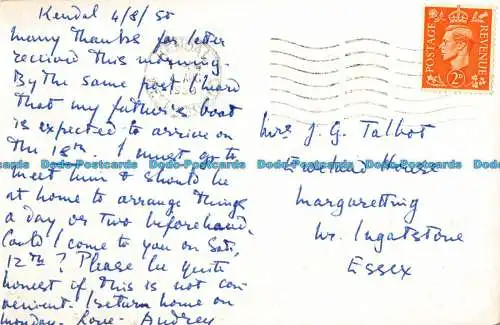 Kendal 4/8/50
Many thanks for letter
received this morning.
By the same post I heard
that my father's boat
is expected to arrive on
the 18th. I must go to
meet him & should be
at home to arrange things
a day or two beforehand.
Could I come to you on Sat.
12th? Please be quite
honest if this is not con-
venient. I return home on
Monday. Love - Audrey
Mrs J. G. Talbot
House
Margaretting
Nr. Ingatstone
Essex
POSTAGE REVENUE
2D
Dodo-Postcards Dodo-Postcards Dodo-Postcards Dodo-Postcards